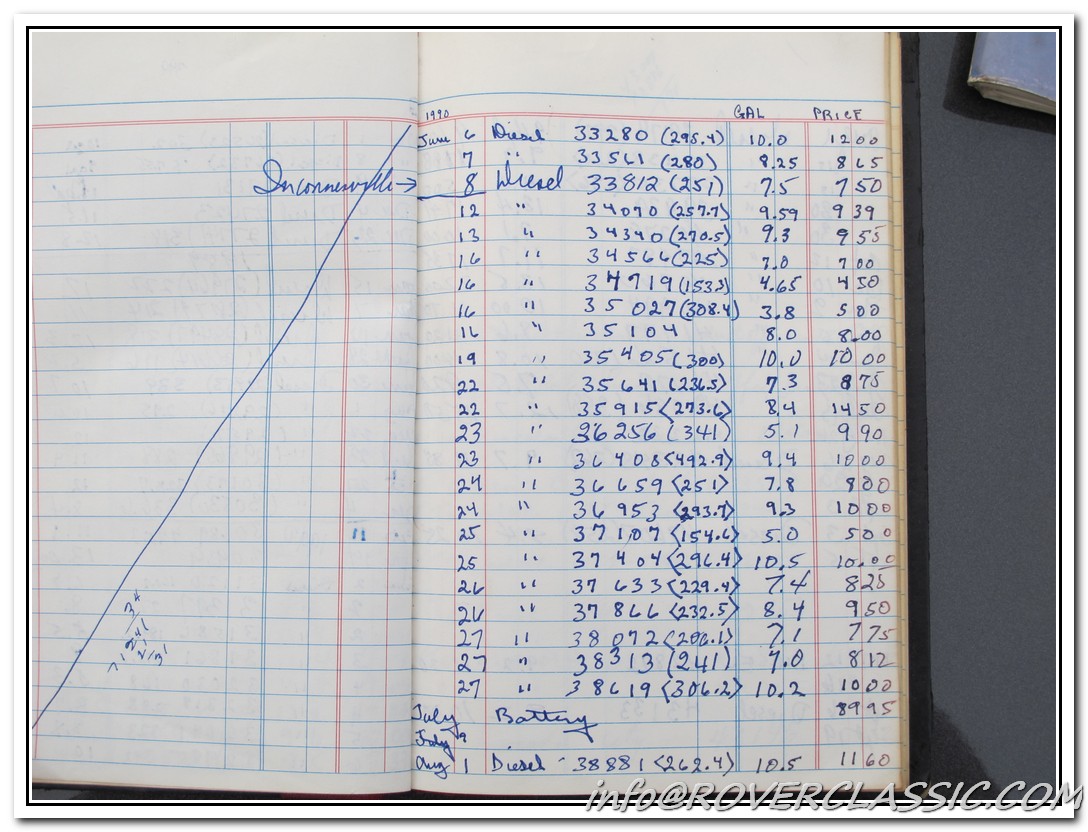 1990 GAL PRICE
June 6 Diesel 33280 (295.4) 10.0 12 00
7 " 33561 (280) 8.25 8 65
→ 8 Diesel 33812 (251) 7.5 7 50
12 " 34070 (257.7) 9.59 9 39
13 " 34340 (270.5) 9.3 9 55
16 " 34566 (225) 7.0 7 00
16 " 34719 (153.3) 4.65 4 50
16 " 35027 (308.4) 3.8 5 00
16 " 35104 8.0 8.00
19 " 35405 (300) 10.0 10 00
22 " 35641 (236.5) 7.3 8 75
22 " 35915 <273.6> 8.4 14 50
23 " 36256 (341) 5.1 9 90
23 " 36408 <492.9> 9.4 10 00
24 " 36659 <251> 7.8 8 00
24 " 36953 <293.7> 9.3 10 00
25 " 37107 <154.6> 5.0 5 00
25 " 37404 <296.4> 10.5 10.00
26 " 37633 <229.4> 7.4 8 25
26 " 37866 <232.5> 8.4 9 50
27 " 38072 <206.1> 7.1 7 75
27 " 38313 (241) 7.0 8 12
27 " 38619 <306.2> 10.2 10 00
July Battery 89 95
July 9
Aug 1 Diesel 38881 <262.4> 10.5 11 60
info@ROVERCLASSIC.COM